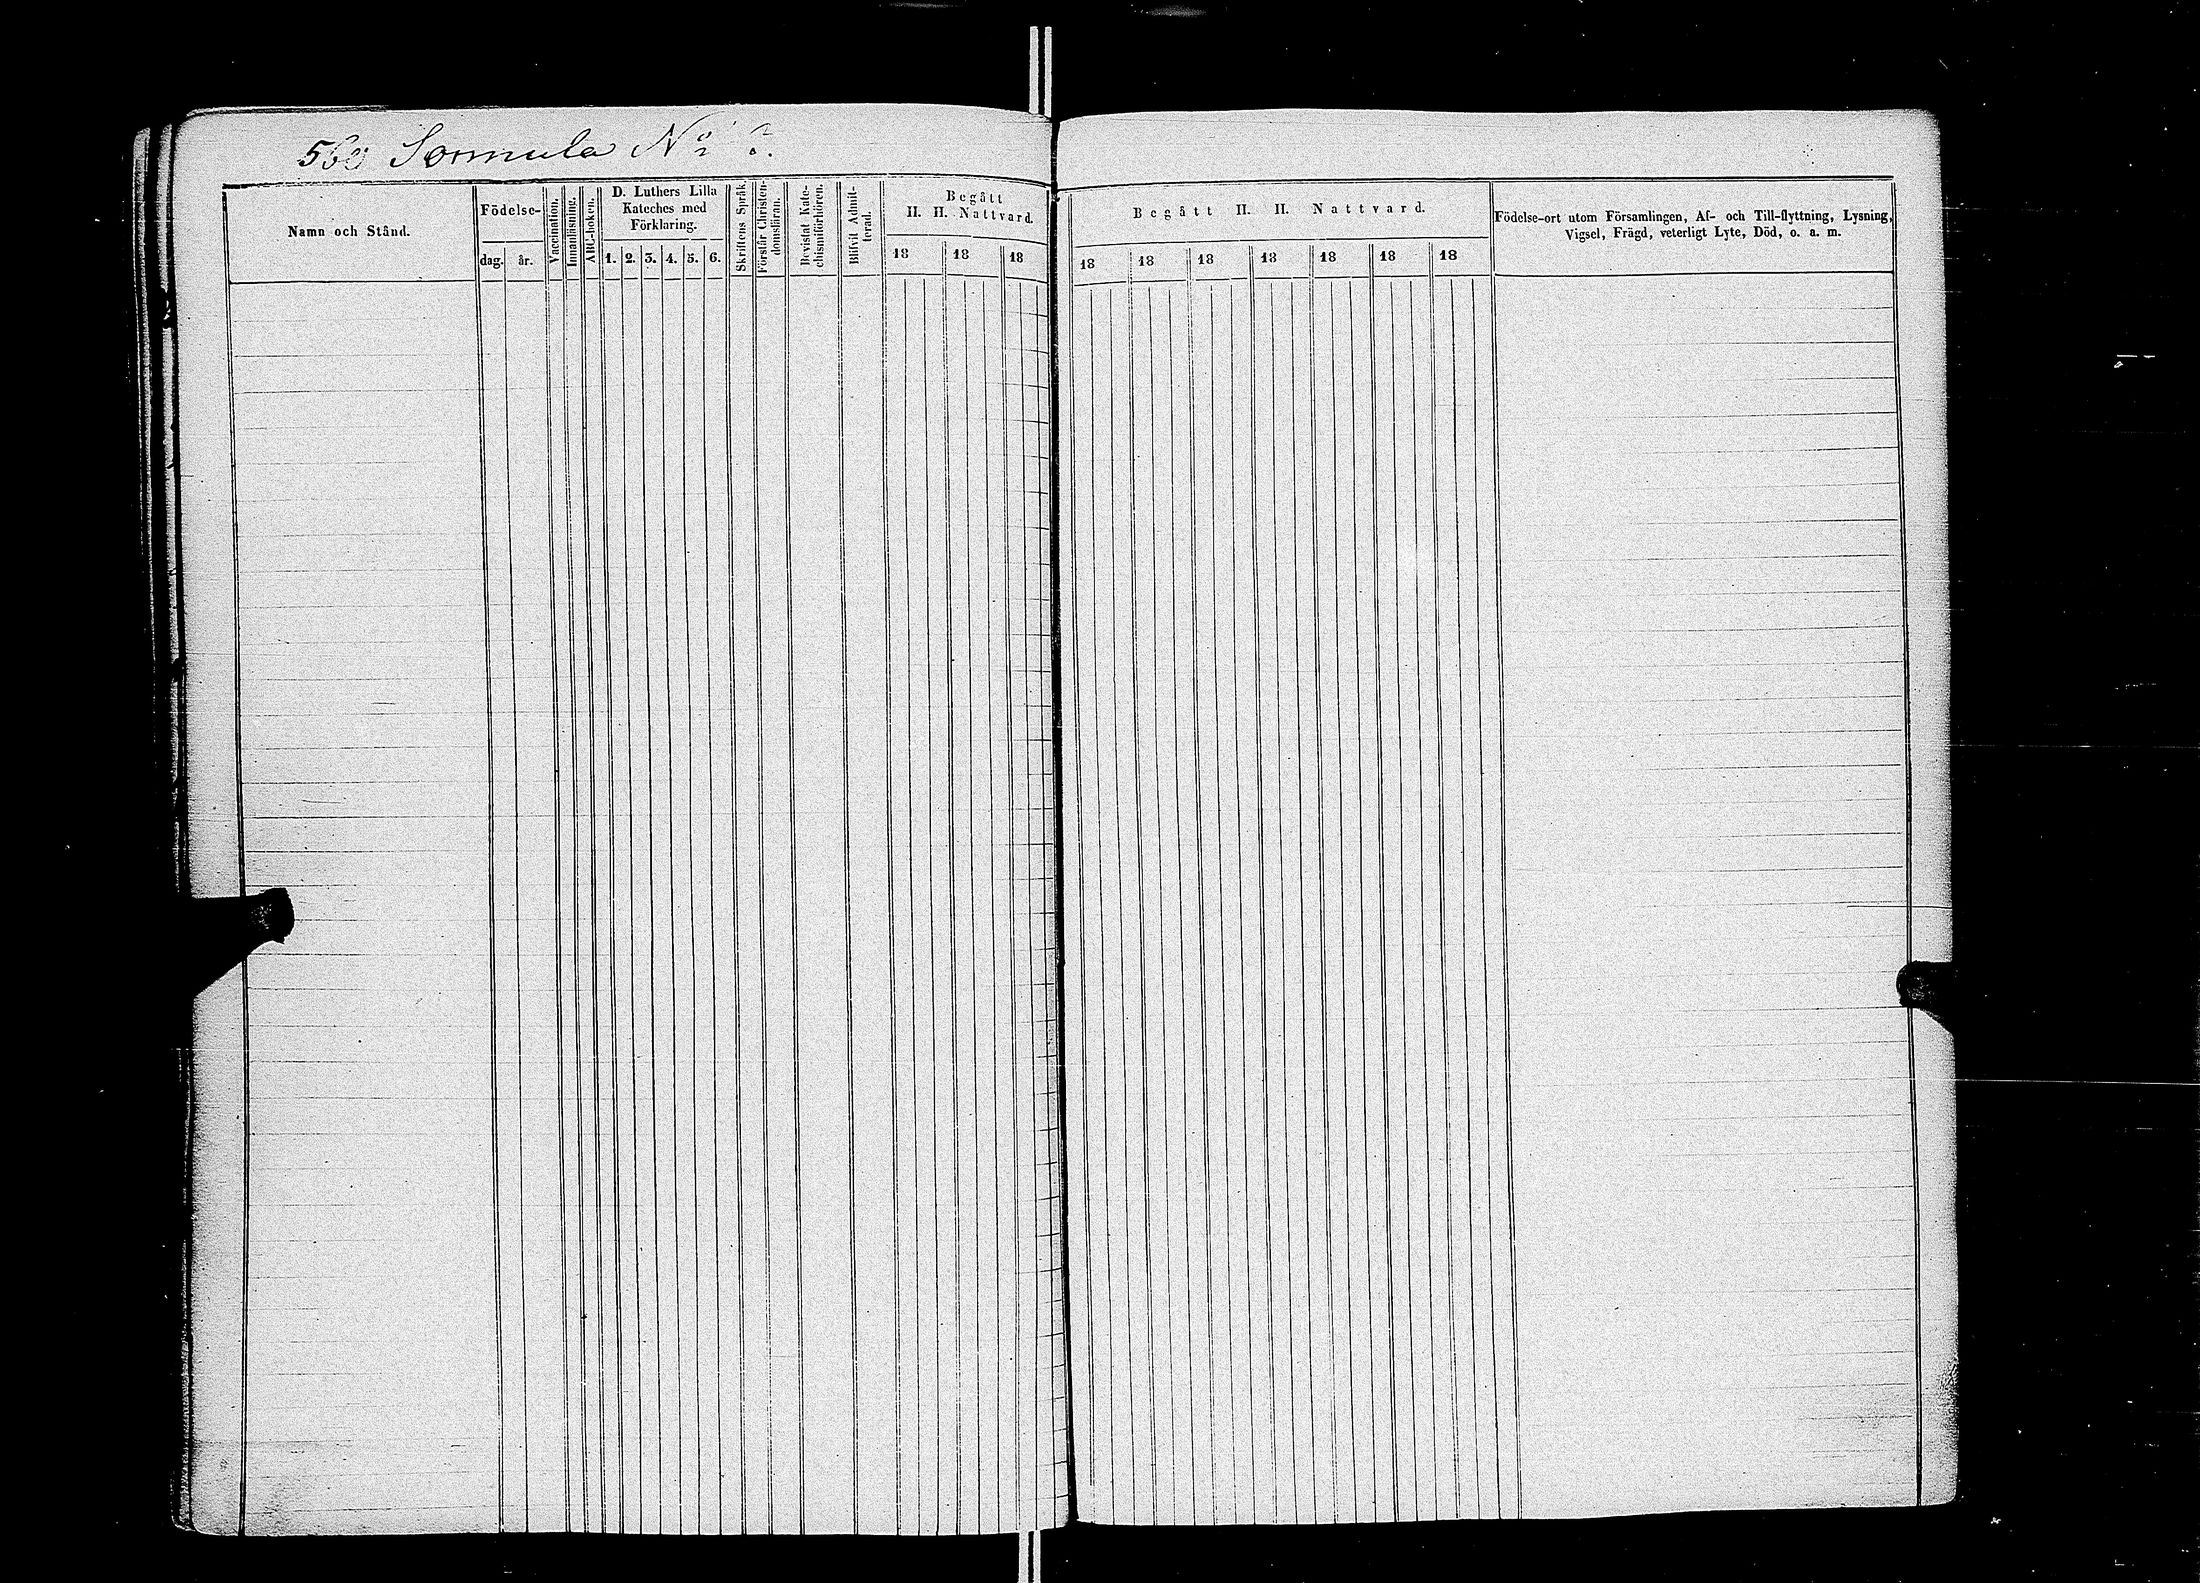 560 Sonnula No
Namn och Stånd.
Födelse-
dag.
år.
Vaccination.
Innanläsning.
ABC-boken.
D. Luthers Lilla
Kateches med
Förklaring.
1. 2. 3. 4. 5. 6.
Skriftens Språk.
Förstår Christen-
domsläran.
Bevistat Kate-
chismiförhören.
Blifvit Admit-
terad.
Begått
H. H. Nattvard.
18 18 18
Begått H. H. Nattvard.
18 18 18 18 18 18 18
Födelse-ort utom Församlingen, Af- och Till-flyttning, Lysning,
Vigsel, Frägd, veterligt Lyte, Död, o. a. m.